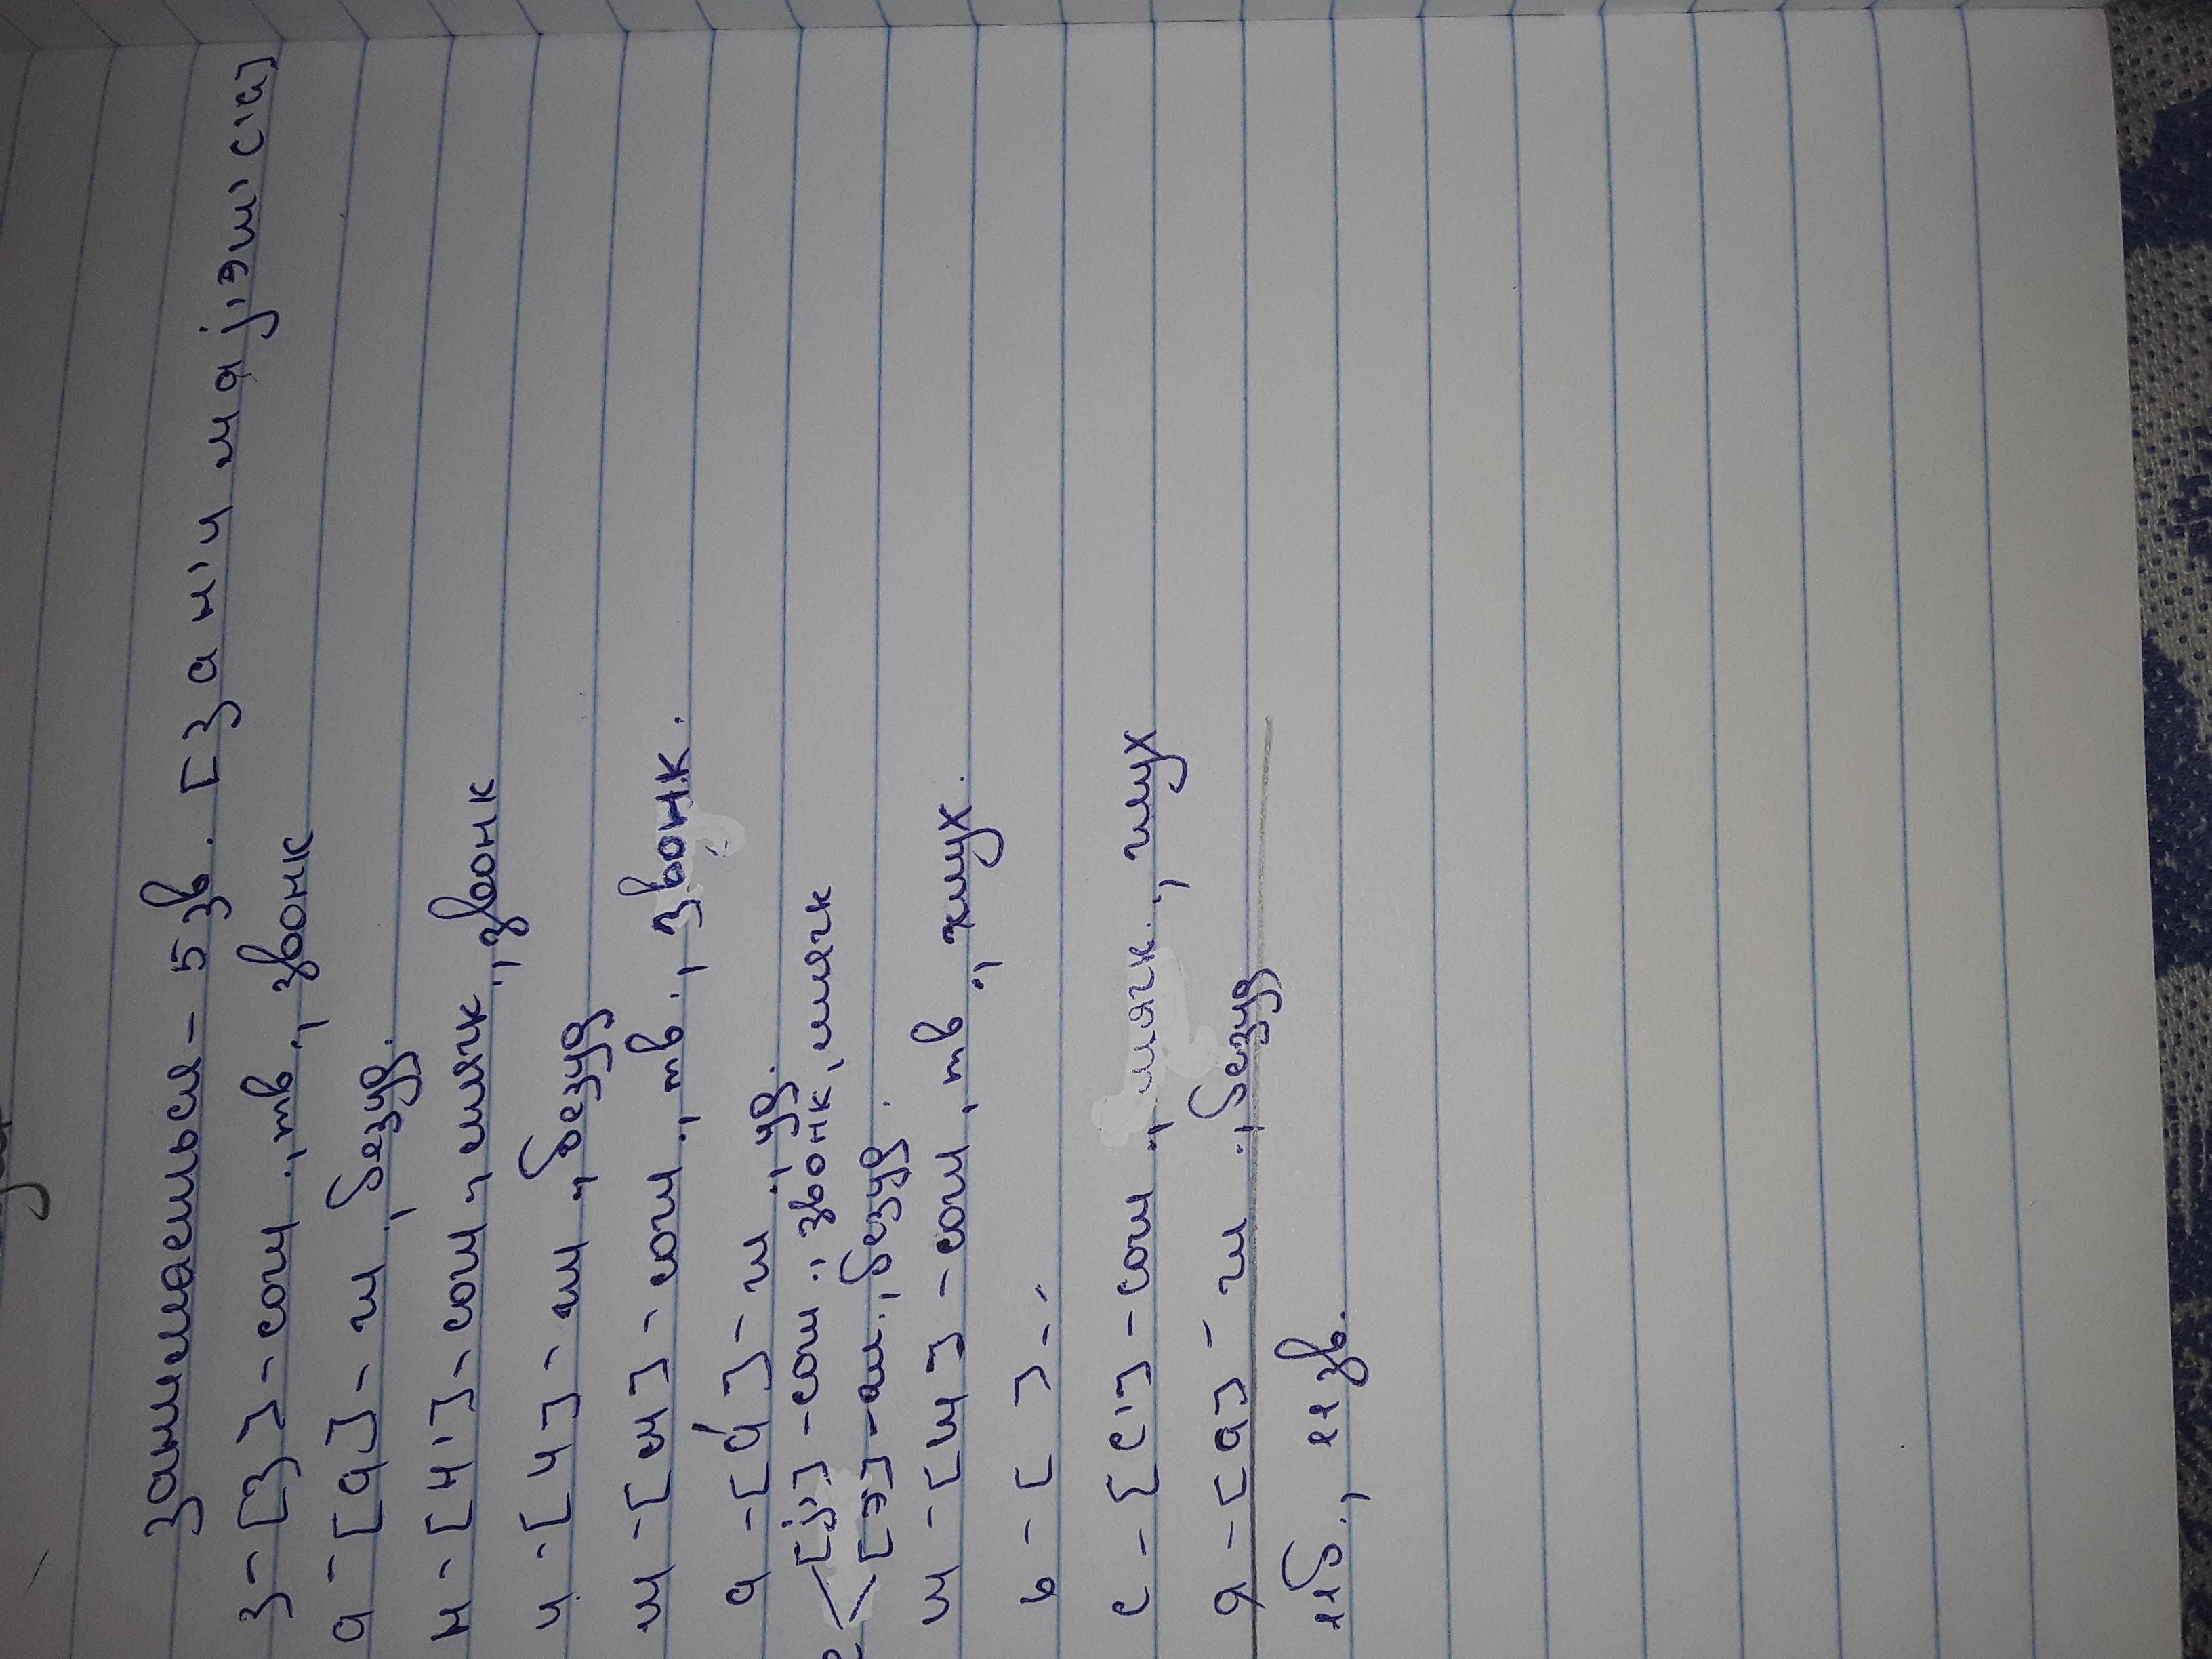 занимаемься - 5 зв. [з а н' и м а j' э ш' с' а]
з - [з] - согл., тв., звонк
а - [а] - гл, безуд.
н - [н'] - согл., мягк., звонк
и - [и] - гл., безуд
м - [м] - согл., тв., звонк.
а - [а́] - гл., уд.
е < [j'] - согл., звонк, мягк
[э] - гл., безуд.
ш - [ш] - согл, тв., глух.
ь - [ ] - .
с - [с'] - согл., мягк., глух
я - [а] - гл., безуд
11б., 11зв.